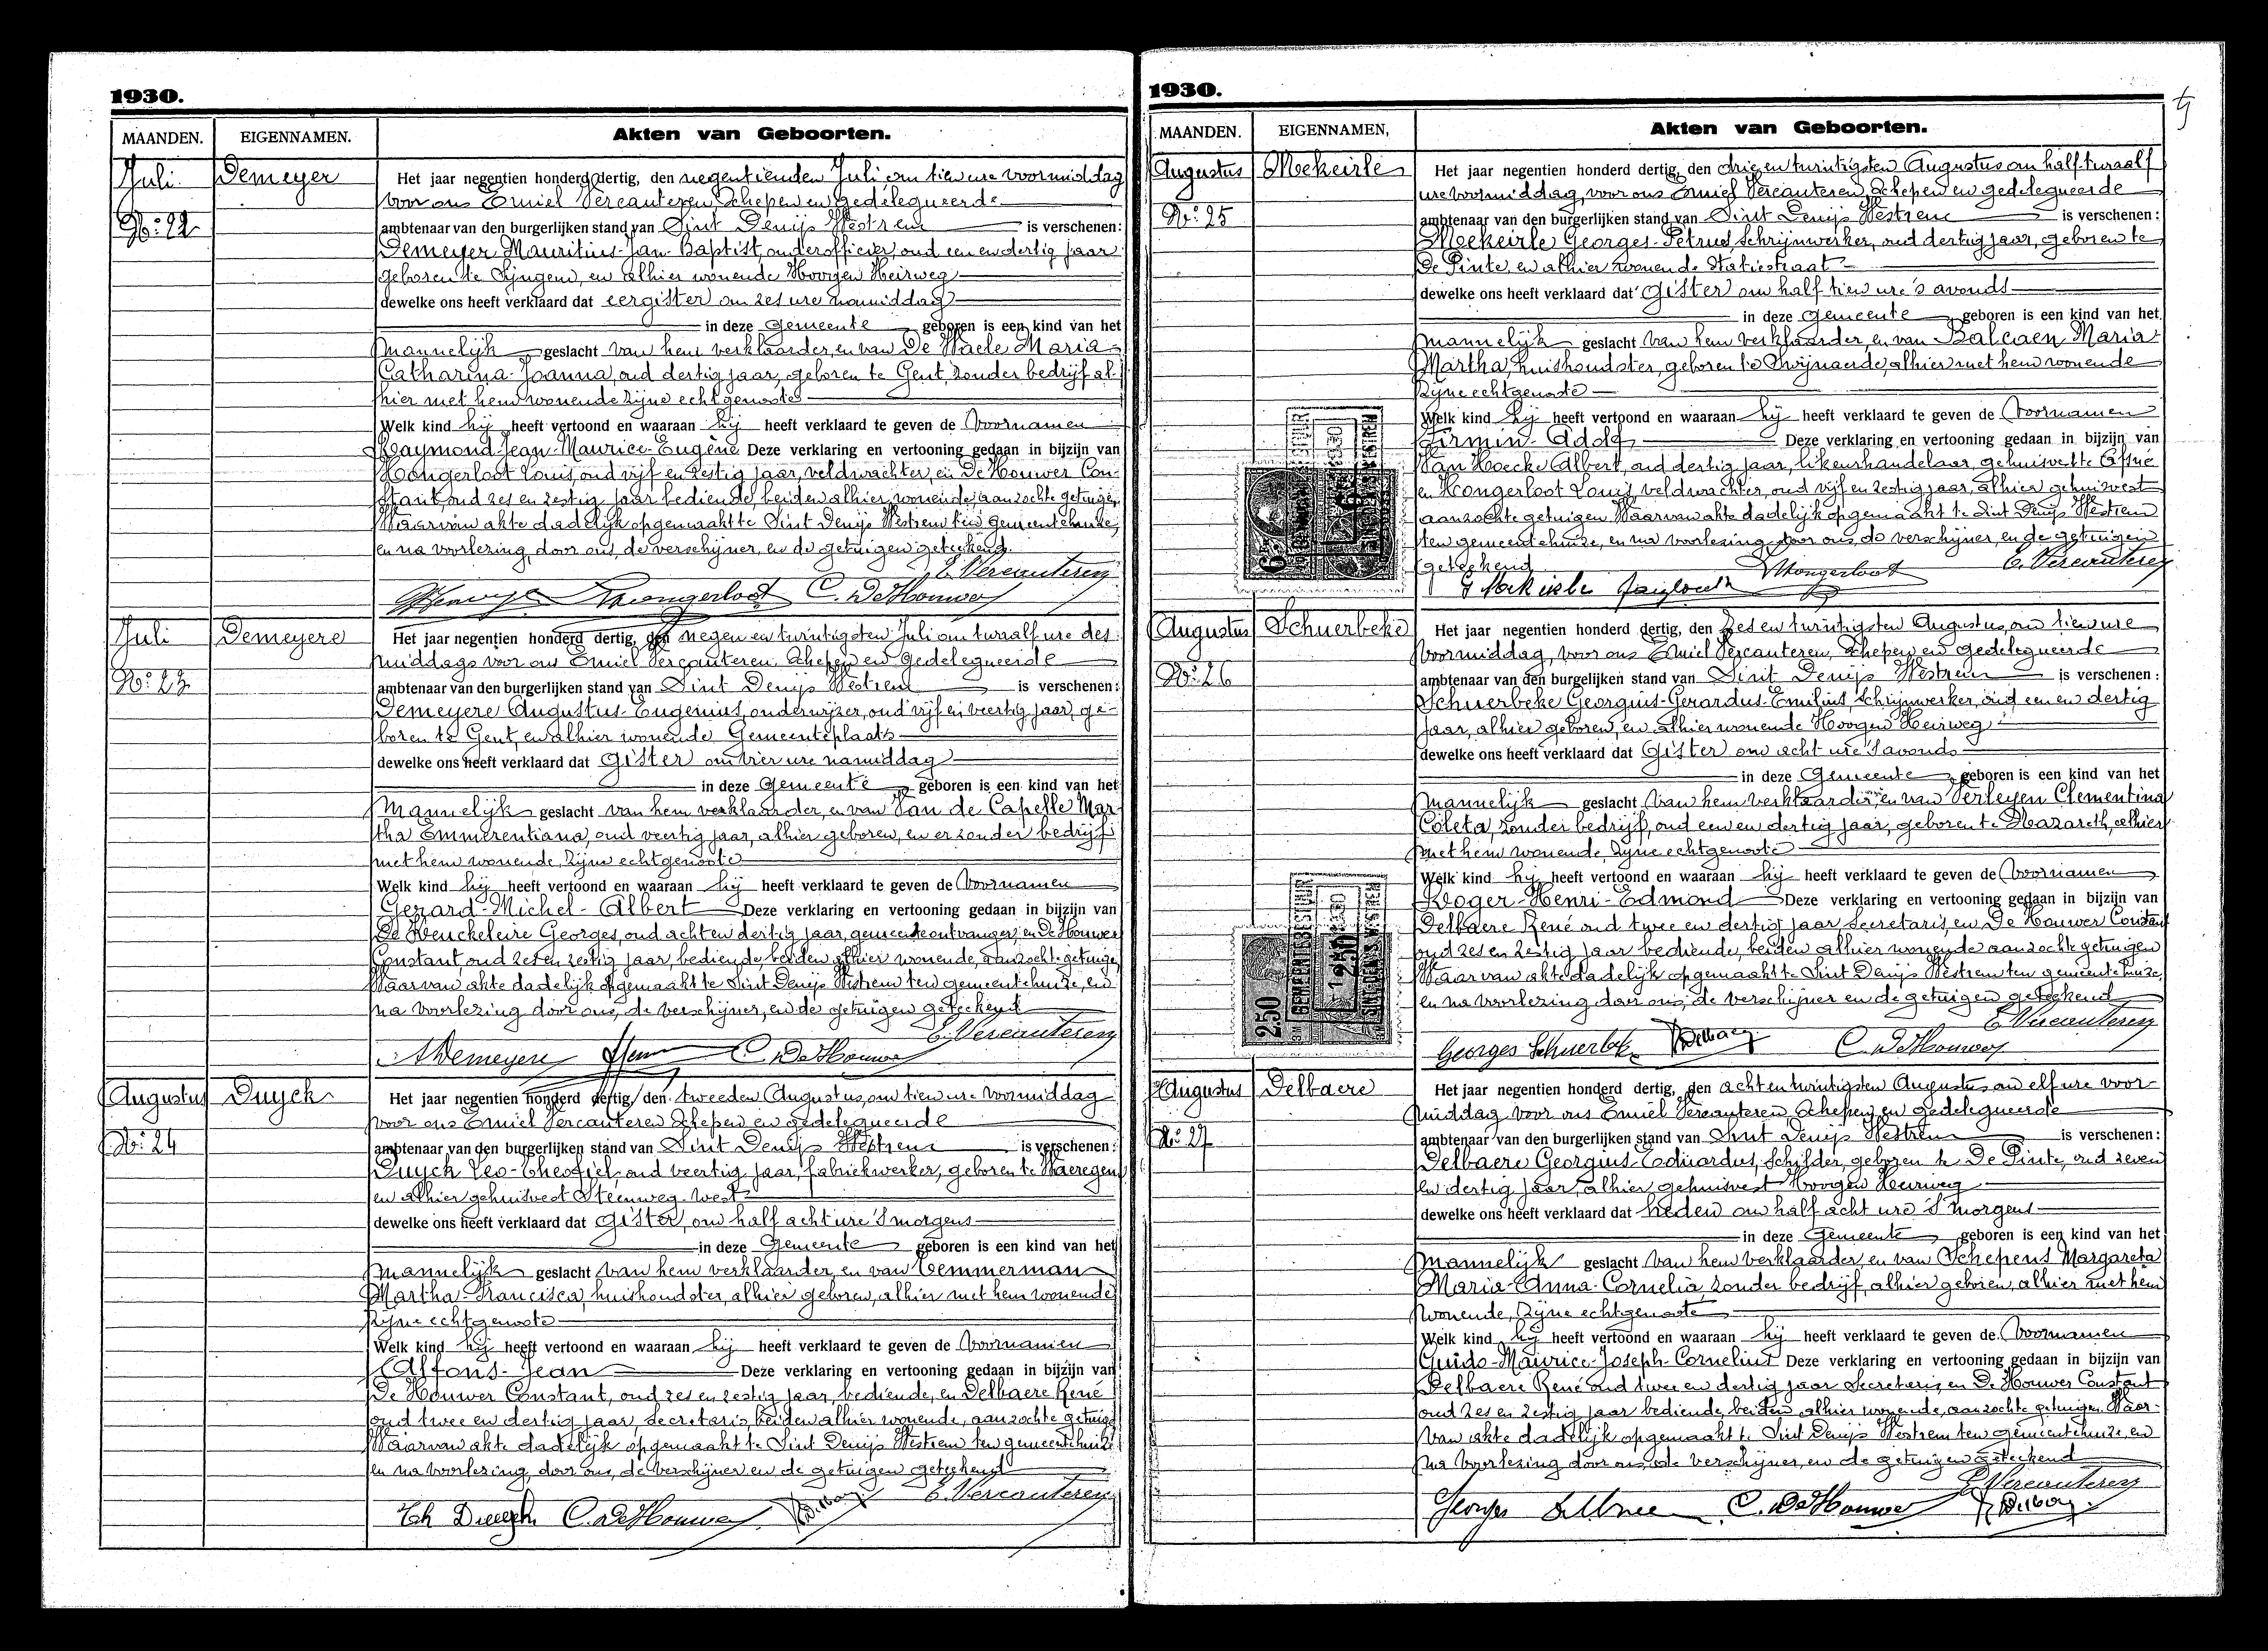 1930.
MAANDEN. EIGENNAMEN. Akten van Geboorten.
Juli Demeyer Het jaar negentien honderd dertig, den negentienden Juli om tien ure voormiddag
voor ons Emiel Vercauteren, Schepen en gedelegueerde
No: 22 ambtenaar van den burgerlijken stand van Sint Denijs Westrem is verschenen:
Demeyer Mauritius-Jan-Baptist, onderofficier, oud een en dertig jaar
geboren te Syngem, en alhier wonende Hoogen Heirweg
dewelke ons heeft verklaard dat eergister om zes ure namiddag
in deze Gemeente geboren is een kind van het
Mannelijk geslacht van hem verklaarder, en van De Waele Maria
Catharina-Joanna, oud dertig jaar, geboren te Gent, zonder bedrijf al
hier met hem wonende zijne echtgenoote
Welk kind hij heeft vertoond en waaraan hij heeft verklaard te geven de voornamen
Raymond-Jean-Maurice-Eugène Deze verklaring en vertooning gedaan in bijzijn van
Hongerloot Louis, oud vijf en zestig jaar, veldwachter, en De Houwer Con-
stant, oud zes en zestig jaar bediende, beiden alhier wonende, aanzochte getuigen
Waarvan akte dadelijk opgemaakt te Sint Denijs Westrem ten gemeentehuize,
en na voorlezing door ons, de verschijner, en de getuigen geteekend.
E. Vercauteren
Hongerloot C. De Houwer
Juli Demeyere Het jaar negentien honderd dertig, den negen en twintigsten Juli om twaalf ure des
middags voor ons Emiel Vercauteren, Schepen en gedelegueerde
No: 23 ambtenaar van den burgerlijken stand van Sint Denijs Westrem is verschenen:
Demeyere Augustus-Eugenius, onderwijzer, oud vijf en veertig jaar, ge-
boren te Gent, en alhier wonende Gemeenteplaats
dewelke ons heeft verklaard dat Gister om vier ure namiddag
in deze Gemeente geboren is een kind van het
Mannelijk geslacht van hem verklaarder, en van Van de Capelle Mar-
tha Emmerentiana, oud veertig jaar, alhier geboren, en er zonder bedrijf
met hem wonende, zijne echtgenoote
Welk kind hij heeft vertoond en waaraan hij heeft verklaard te geven de voornamen
Gerard-Michel-Albert Deze verklaring en vertooning gedaan in bijzijn van
De Keuckeleire Georges, oud acht en dertig jaar, gemeente ontvanger, en De Houwer
Constant, oud zes en zestig jaar, bediende, beiden alhier wonende, aanzochte getuigen
Waarvan akte dadelijk opgemaakt te Sint Denijs Westrem ten gemeentehuize, en
na voorlezing door ons, de verschijner, en de getuigen geteekend
E. Vercauteren
A Demeyere C. De Houwer
Augustus Duyck Het jaar negentien honderd dertig, den tweeden Augustus, om tien ure voormiddag
voor ons Emiel Vercauteren Schepen en gedelegueerde
No: 24 ambtenaar van den burgerlijken stand van Sint Denijs Westrem is verschenen:
Duyck Leo-Theofiel, oud veertig jaar, fabriekwerker, geboren te Waeregem
en alhier gehuisvest Steenweg-West
dewelke ons heeft verklaard dat Gister, om half acht ure 's morgens
in deze Gemeente geboren is een kind van het
Mannelijk geslacht van hem verklaarder, en van Temmerman
Martha-Francisca, huishoudster, alhier geboren, alhier met hem wonende
zijne echtgenoote
Welk kind hij heeft vertoond en waaraan hij heeft verklaard te geven de voornamen
Alfons-Jean Deze verklaring en vertooning gedaan in bijzijn van
De Houwer Constant, oud zes en zestig jaar, bediende, en Delbaere René
oud twee en dertig jaar, Secretaris, beiden alhier wonende, aanzochte getuigen
Waarvan akte dadelijk opgemaakt te Sint Denijs Westrem ten gemeentehuize
en na voorlezing door ons, de verschijner en de getuigen geteekend
E. Vercauteren
Th Duyck C. De Houwer R Delbaere
1930.
MAANDEN. EIGENNAMEN, Akten van Geboorten.
Augustus Mekeirle Het jaar negentien honderd dertig, den drie en twintigsten Augustus om half twaalf
ure voormiddag, voor ons Emiel Vercauteren, Schepen en gedelegueerde
No: 25 ambtenaar van den burgerlijken stand van Sint Denijs Westrem is verschenen:
Mekeirle Georges-Petrus, Schrijnwerker, oud dertig jaar, geboren te
De Pinte, en alhier wonende Statiestraat
dewelke ons heeft verklaard dat Gister om half tien ure 's avonds
in deze Gemeente geboren is een kind van het
Mannelijk geslacht van hem verklaarder, en van Balcaen Maria
Martha, huishoudster, geboren te Zwijnaerde, alhier met hem wonende
zijne echtgenoote
Welk kind hij heeft vertoond en waaraan hij heeft verklaard te geven de voornamen
Firmin-Adolf Deze verklaring en vertooning gedaan in bijzijn van
Van Hoecke Albert, oud dertig jaar, likeurhandelaar, gehuisvest te Afsné
en Hongerloot Louis, veldwachter, oud vijf en zestig jaar, alhier gehuisvest
aanzochte getuigen. Waarvan akte dadelijk opgemaakt te Sint Denijs Westrem
ten gemeentehuize, en na voorlezing door ons, de verschijner, en de getuigen
geteekend.
G Mekeirle Hongerloot E. Vercauteren
Augustus Schuerbeke Het jaar negentien honderd dertig, den zes en twintigsten Augustus, om tien ure
voormiddag, voor ons Emiel Vercauteren, Schepen en gedelegueerde
No: 26 ambtenaar van den burgerlijken stand van Sint Denijs Westrem is verschenen:
Schuerbeke Georguis-Gerardus-Emilius, Schrijnwerker, oud een en dertig
jaar, alhier geboren, en alhier wonende Hoogen Heirweg
dewelke ons heeft verklaard dat Gister om acht ure 's avonds
in deze Gemeente geboren is een kind van het
Mannelijk geslacht van hem verklaarder, en van Verleyen Clementina
Coleta, zonder bedrijf, oud een en dertig jaar, geboren te Nazareth, alhier
met hem wonende, zijne echtgenoote
Welk kind hij heeft vertoond en waaraan hij heeft verklaard te geven de voornamen
Roger-Henri-Edmond Deze verklaring en vertooning gedaan in bijzijn van
Delbaere René oud twee en dertig jaar Secretaris, en De Houwer Constant
oud zes en zestig jaar bediende, beiden alhier wonende aanzochte getuigen
Waarvan akte dadelijk opgemaakt te Sint Denijs Westrem ten gemeentehuize,
en na voorlezing door ons, de verschijner en de getuigen geteekend
2.50 1.2.50
E. Vercauteren
Georges Schuerbeke R Delbaere C. De Houwer
Augustus Delbaere Het jaar negentien honderd dertig, den acht en twintigsten Augustus om elf ure voor-
middag voor ons Emiel Vercauteren Schepen en gedelegueerde
No: 27 ambtenaar van den burgerlijken stand van Sint Denijs Westrem is verschenen:
Delbaere Georguis-Eduardus, Schilder, geboren te De Pinte, oud zeven
en dertig jaar, alhier gehuisvest Hoogen Heirweg
dewelke ons heeft verklaard dat heden om half acht ure 's morgens
in deze Gemeente geboren is een kind van het
Mannelijk geslacht van hem verklaarder, en van Schepens Margareta
Maria-Anna-Cornelia zonder bedrijf, alhier geboren, alhier met hem
wonende, zijne echtgenoote
Welk kind hij heeft vertoond en waaraan hij heeft verklaard te geven de voornamen
Guido-Maurice-Joseph-Cornelius Deze verklaring en vertooning gedaan in bijzijn van
Delbaere René oud twee en dertig jaar Secretaris, en De Houwer Constant
oud zes en zestig jaar bediende, beiden alhier wonende, aanzochte getuigen. Waar-
van akte dadelijk opgemaakt te Sint Denijs Westrem ten gemeentehuize, en
na voorlezing door ons, de verschijner, en de getuigen geteekend
E. Vercauteren
Georges Delbaere C. De Houwer R Delbaere